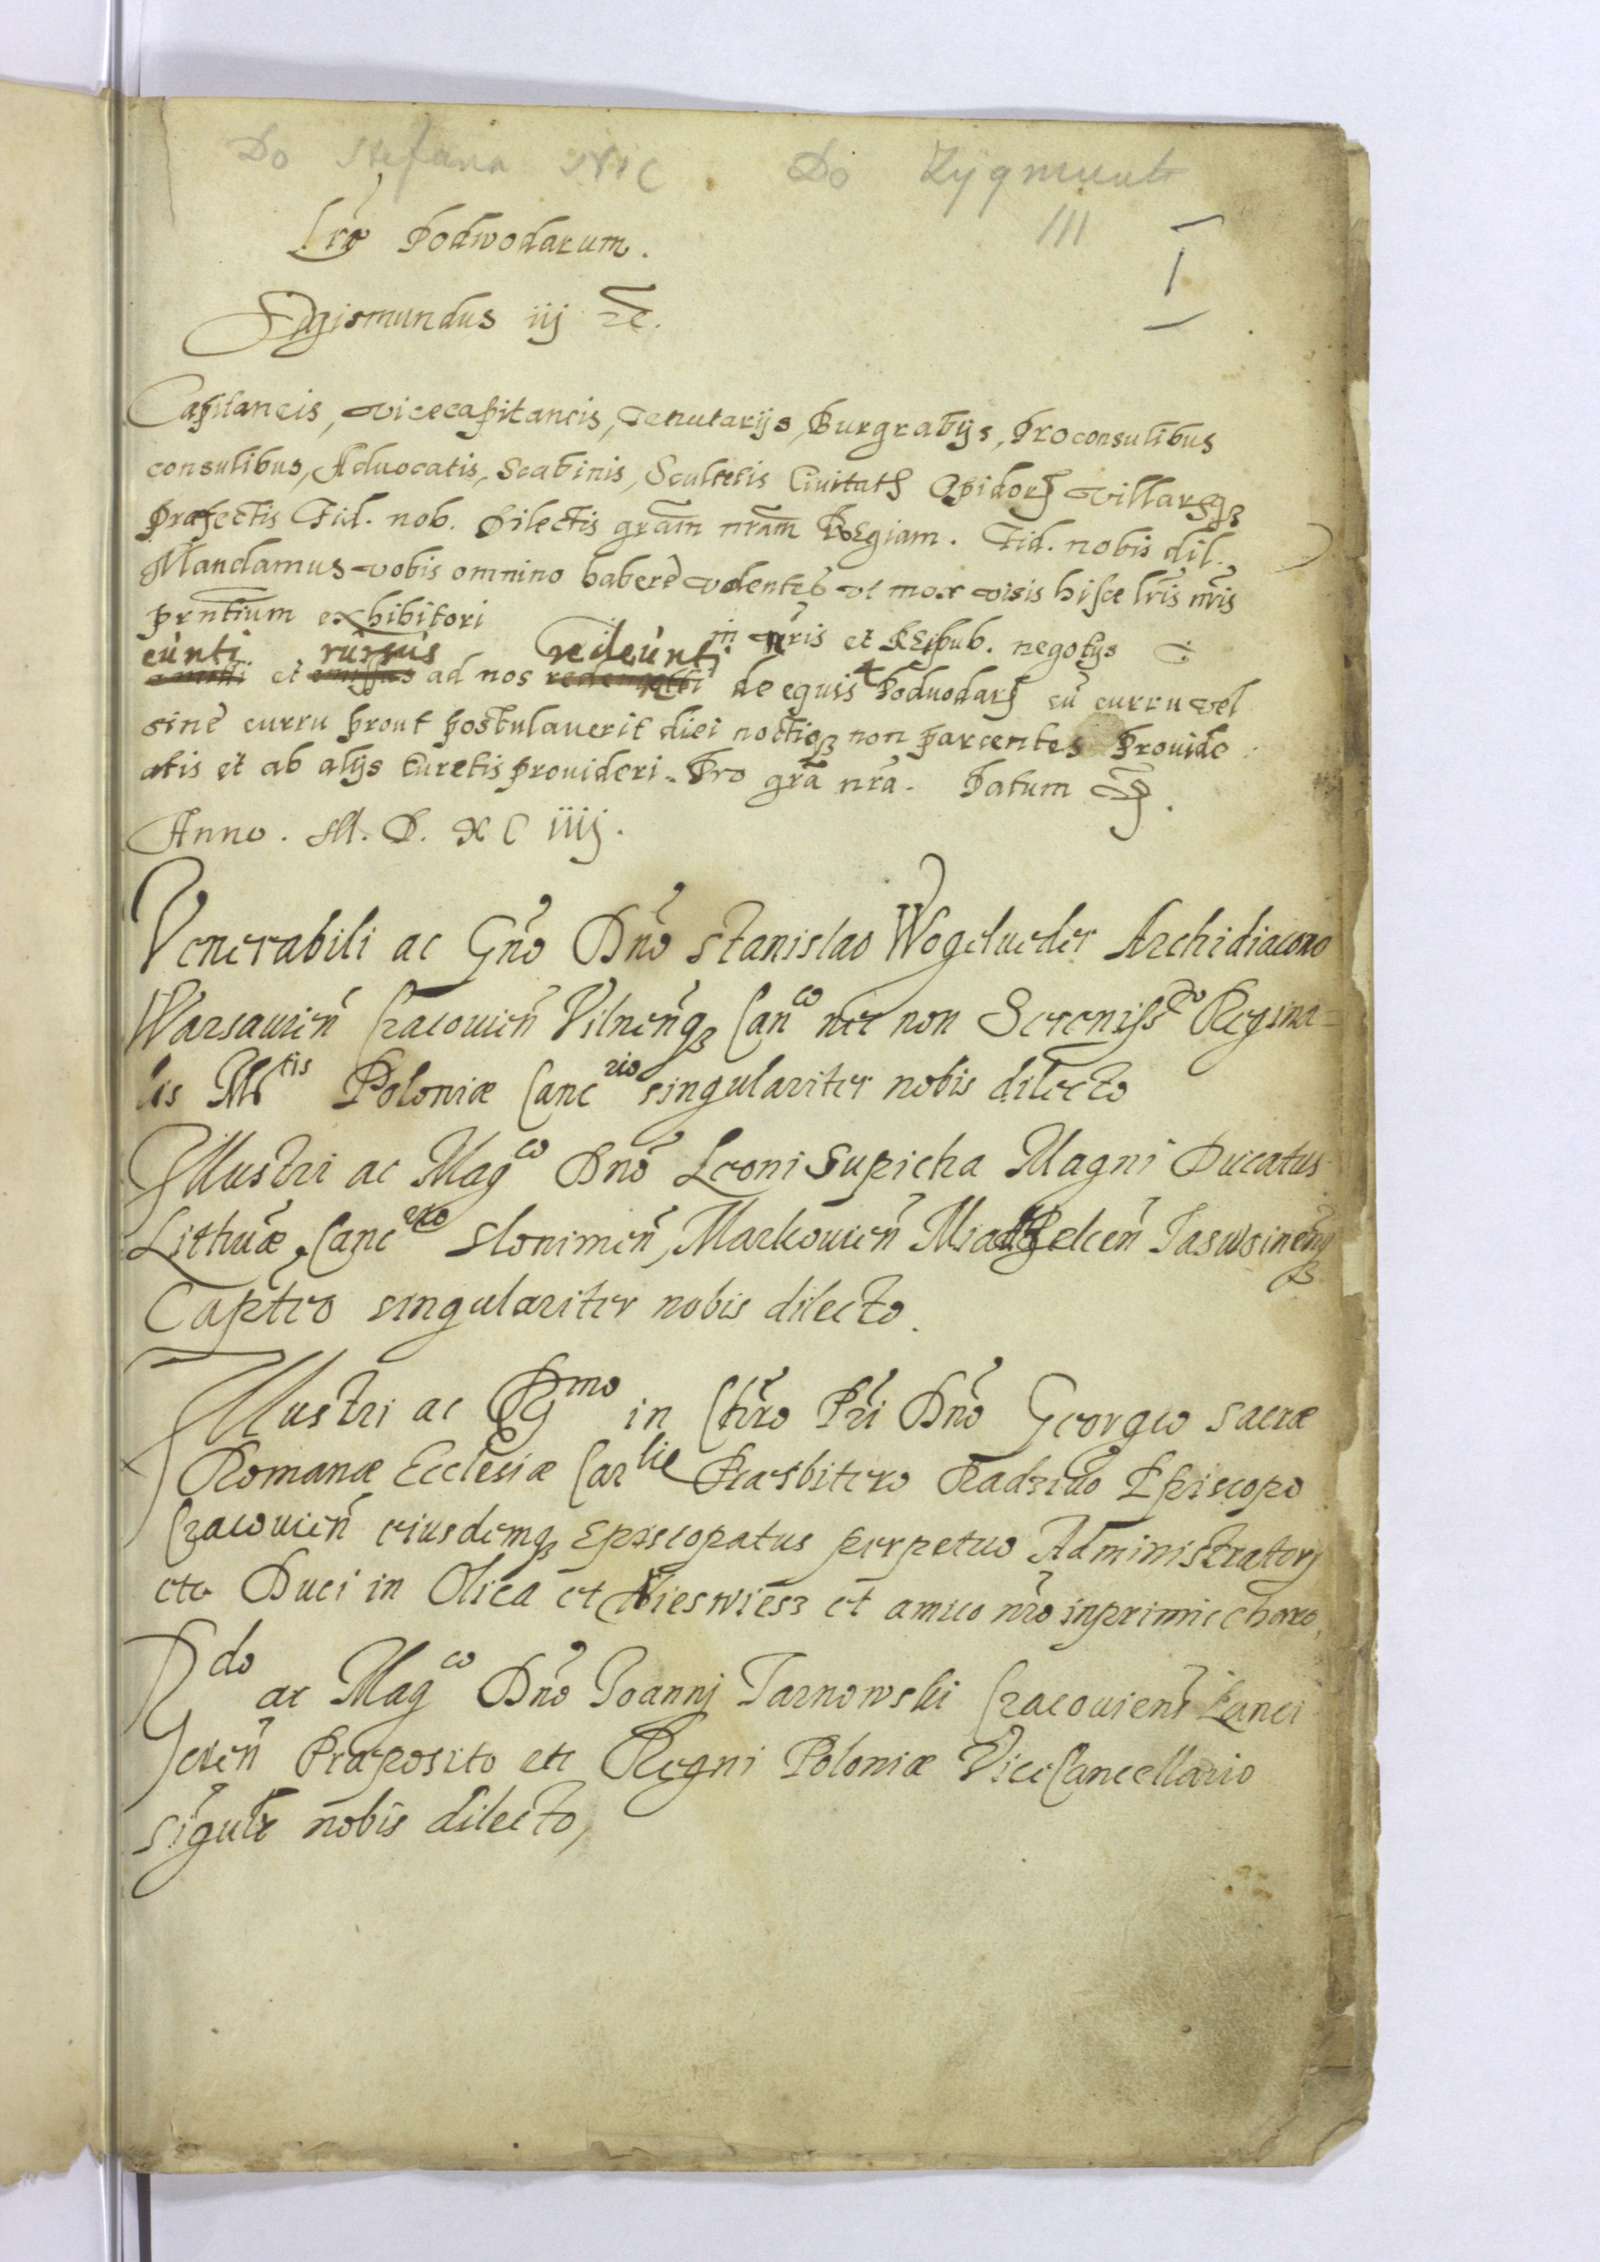 Do Stefana Do Zygmunta
III
I
Lrae Podwodarum.
Sigismundus iij etc.
Capitaneis, vicecapitaneis, Tenutarijs, Burgrabijs, Proconsulibus
consulibus, Advocatis, Scabinis, Scultetis Civitatu Opidoru villaruq
Praefectis Fid. nob. Dilectis gram nram Regiam. Fid. nobis dil.
Mandamus vobis omnino habere volentes vt mox visis hisce lris nris
prntium exhibitori in nris et Reipub. negotijs
eunti rursus redeunti
et ad nos de equis 4 Podvodaru cu curru vel
sine curru prout postulaverit diei noctiq non parcentes Provide
atis et ab alijs Curetis provideri. Pro gra nra. Datum
Anno. M. D. XC iiij.
Venerabili ac Gno Dno Stanislao Wogelueder Archidiacono
Warsavien Cracovien Vilnenq Canco nec non Sereniss Regina=
lis Mtis Poloniæ Cancrio singulariter nobis dilecto
Illustri ac Magco Dno Leoni Supieha Magni Ducatus
Lithuæ, Cancrio Slonimen, Markovien Miadzelcen Jaswoinenq
Capteo singulariter nobis dilecto.
Illustri ac Rmo in Chro Pri Dno Georgio sacræ
Romanæ Ecclesiæ Carlie Præsbitero Radziuo Episcopo
Cracouien eiusdemq Episcopatus perpetuo Administratorj
etc Duci in Olica et Nieswiesz et amico nro inprimic charo,
Rdo ac Magco Dno Joannj Tarnowski Cracouien Lanci
ciën Præposito etc Regni Poloniæ ViceCancellario
sigulr nobis dilecto,